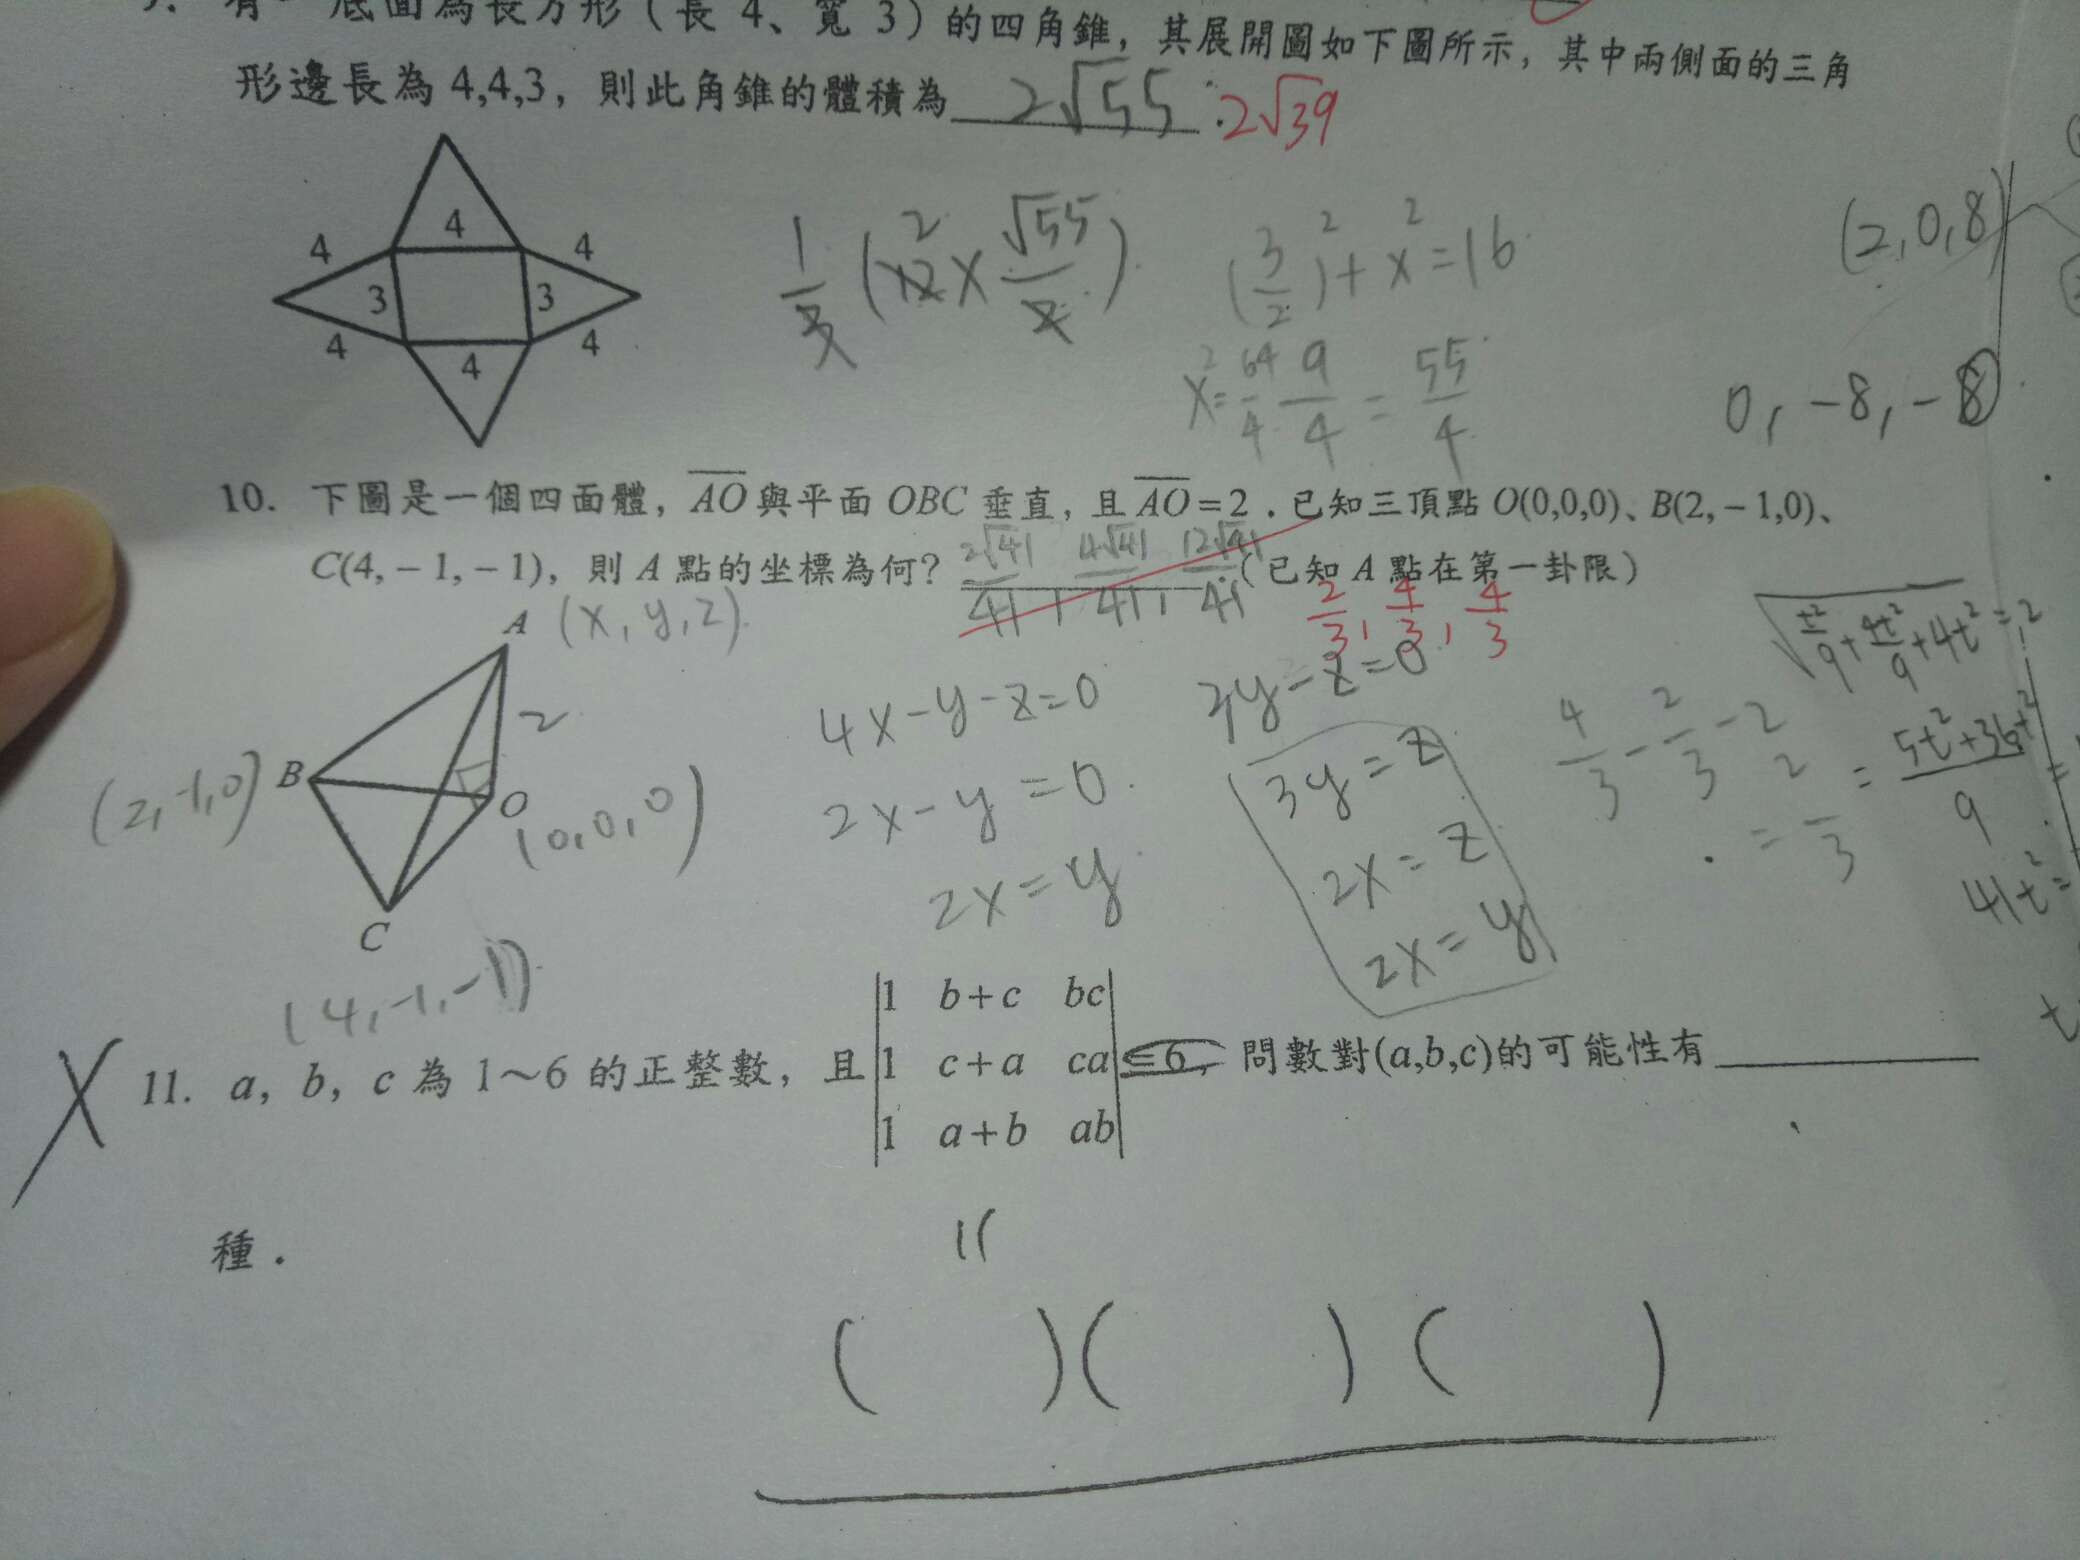 底面為長方形（長 4、寬 3）的四角錐，其展開圖如下圖所示，其中兩側面的三角
形邊長為 4,4,3，則此角錐的體積為 2√55 . 2√39
4
4
4
3
3
4
4
4
1/3 (12 × √55/2) 2
(3/2)² + x² = 16
x² = 64/4 9/4 = 55/4
(2,0,8)
0, -8, -8
10. 下圖是一個四面體，AO 與平面 OBC 垂直，且 AO = 2．已知三頂點 O(0,0,0)、B(2, – 1,0)、
C(4, – 1, – 1)，則 A 點的坐標為何？ 2√41/41, 4√41/41, 12√41/41 （已知 A 點在第一卦限）
2/3, 4/3, 4/3
A (x, y, z)
2
B (2, -1, 0)
O (0, 0, 0)
C
(4, -1, -1)
4x - y - z = 0
2x - y = 0
2x = y
y - z = 0
3y = z
2x = z
2x = y
4/3 - 2/3 - 2
= 2/3
√t²/9 + 4t²/9 + 4t² = 2
= 5t² + 36t²/9 =
41t² =
t
11. a，b，c 為 1～6 的正整數，且 |1 b+c bc| = 6，問數對(a,b,c)的可能性有
1 c+a ca
1 a+b ab
種．
( ) ( ) ( )